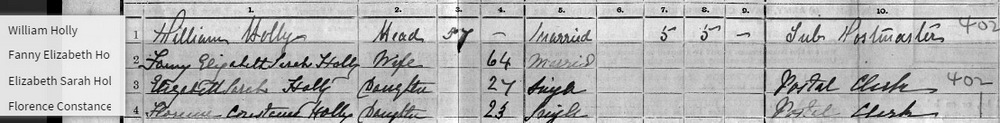 1. 2. 3. 4. 5. 6. 7. 8. 9. 10.
William Holly
1 William Holly Head 57 — Married 5 5 — Sub Postmaster 402
Fanny Elizabeth Ho
2 Fanny Elizabeth Sarah Holly Wife 64 Married
Elizabeth Sarah Hol
3 Elizabeth Sarah Holly Daughter 27 Single Postal Clerk 402
Florence Constance
4 Florence Constance Holly Daughter 23 Single Postal Clerk